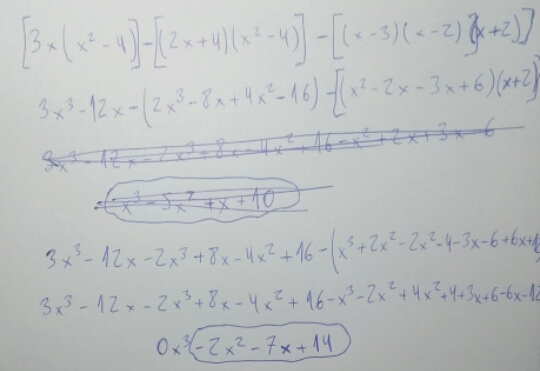 [3x(x²-4)]-[(2x+4)(x²-4)]-[(x-3)(x-2)](x+2)]
3x³-12x-(2x³-8x+4x²-16)-[(x²-2x-3x+6)(x+2)
3x³-12x-2x³+8x-4x²+16-x²+2x+3x-6
x³-5x²+x+10
3x³-12x-2x³+8x-4x²+16-(x³+2x²-2x²-4-3x-6+6x+12
3x³-12x-2x³+8x-4x²+16-x³-2x²+4x²+4+3x+6-6x-12
0x³-2x²-7x+14